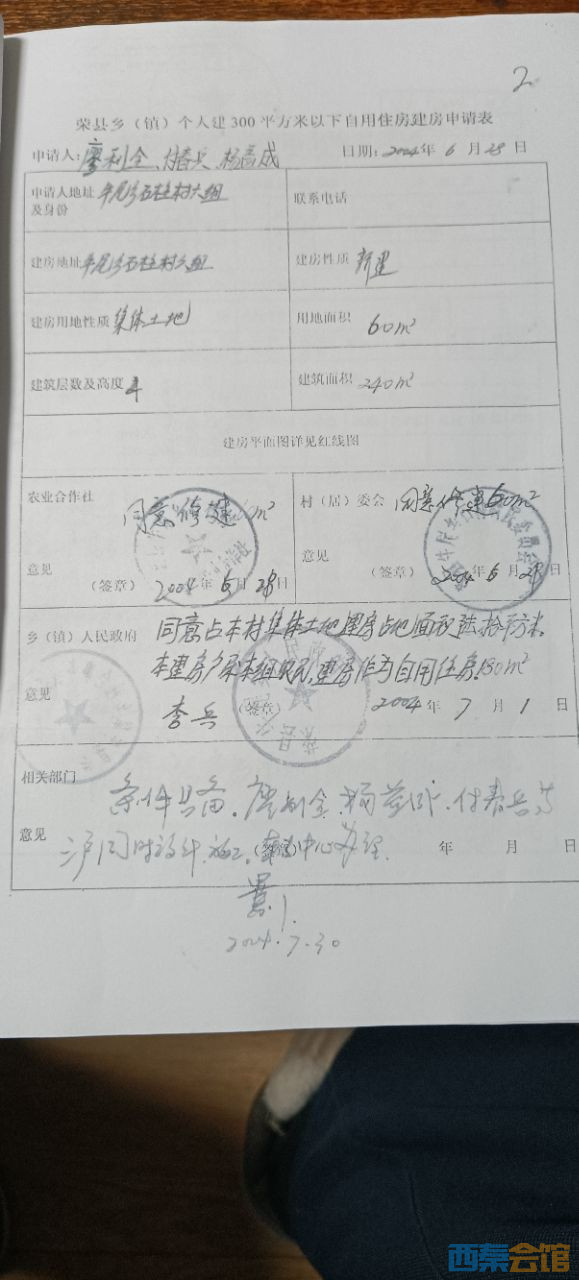 2
荣县乡（镇）个人建300平方米以下自用住房建房申请表
申请人：廖利全、付春兵、杨益成 日期：2004年6月28日
申请人地址及身份 牟尾乡石柱村六组 联系电话
建房地址 牟尾乡石柱村六组 建房性质 新建
建房用地性质 集体土地 用地面积 60m²
建筑层数及高度 4 建筑面积 240m²
建房平面图详见红线图
农业合作社 同意修建 m² 村（居）委会 同意修建60m²
意见 意见
（签章）2004年6月28日 （签章）2004年6月28日
乡（镇）人民政府 同意占本村集体土地建房占地面积陆拾平方米。
本建房户属本组农民，建房作为自用住房180m²
意见 李兵 （签章） 2004年7月1日
相关部门 条件具备。廖利全、杨益成、付春兵等
意见 三户同时设计、施工。 中心办理 （签章） 年 月 日
2004.7.30
西秦会馆